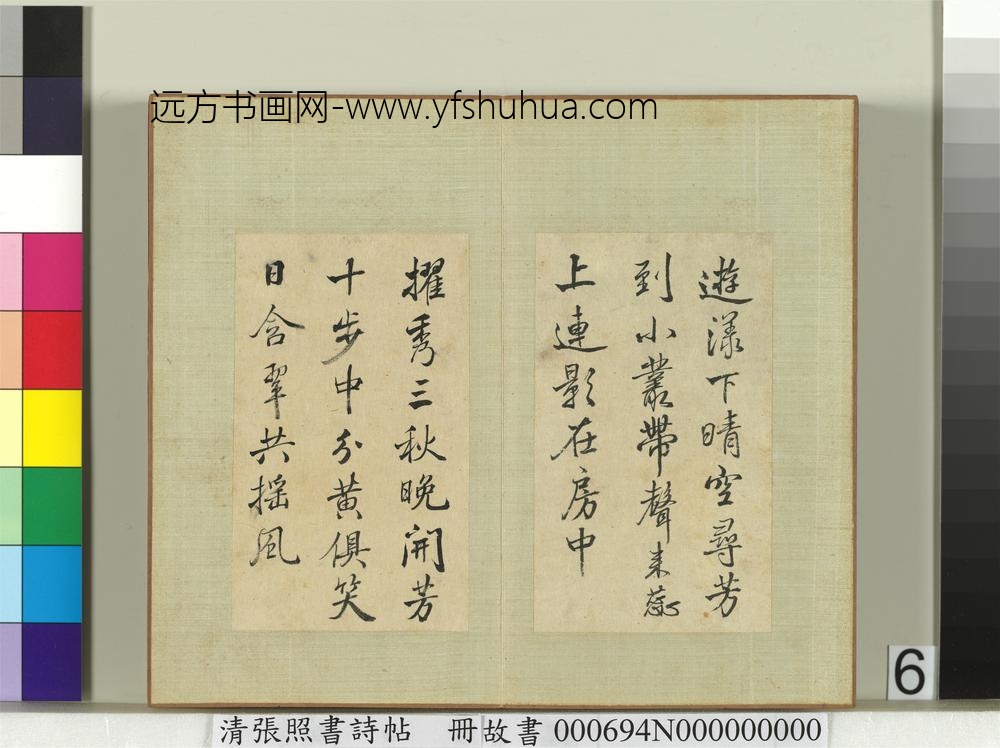 远方书画网-www.yfshuhua.com
遊漾下晴空尋芳
到小叢帶聲来蕊
上連影在房中
擢秀三秋晚開芳
十步中分黄俱笑
日含翠共摇風
6
清張照書詩帖 冊故書 000694N000000000